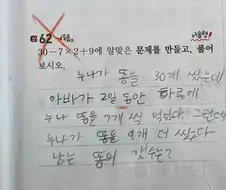 62 서술형
30-7×2+9에 알맞은 문제를 만들고, 풀어
보시오.
누나가 똥을 30개 쌌는데
아빠가 2일 동안 하루에
누나 똥을 7개 씩 먹었다. 그런데
누나가 똥을 9개 더 쌌다
남는 똥의 갯수는?